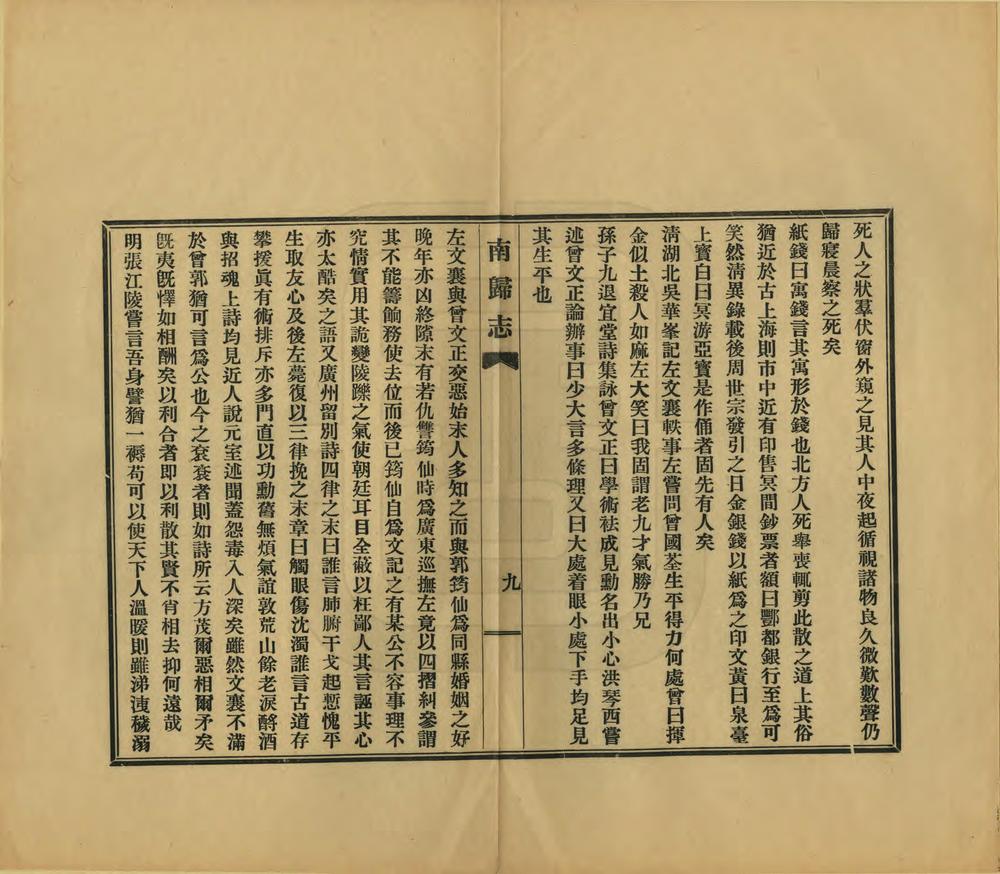 死人之狀羣伏窗外窺之見其人中夜起循視諸物良久微歎數聲仍
歸寢晨察之死矣
紙錢曰寓錢言其寓形於錢也北方人死舉喪輒剪此散之道上其俗
猶近於古上海則市中近有印售冥間鈔票者額曰酆都銀行至爲可
笑然淸異錄載後周世宗發引之日金銀錢以紙爲之印文黃曰泉臺
上寶白曰冥游亞寶是作俑者固先有人矣
淸湖北吳華峯記左文襄軼事左嘗問曾國荃生平得力何處曾曰揮
金似土殺人如麻左大笑曰我固謂老九才氣勝乃兄
孫子九退宜堂詩集詠曾文正曰學術袪成見勳名出小心洪琴西嘗
述曾文正論辦事曰少大言多條理又曰大處着眼小處下手均足見
其生平也
南歸志
九
左文襄與曾文正交惡始末人多知之而與郭筠仙爲同縣婚姻之好
晚年亦凶終隙末有若仇讐筠仙時爲廣東巡撫左竟以四摺糾參謂
其不能籌餉務使去位而後已筠仙自爲文記之有某公不容事理不
究情實用其詭變陵躒之氣使朝廷耳目全蔽以枉鄙人其言誣其心
亦太酷矣之語又廣州留別詩四律之末曰誰言肺腑干戈起慙愧平
生取友心及後左薨復以三律挽之末章曰觸眼傷沈濁誰言古道存
攀援眞有術排斥亦多門直以功勳舊無煩氣誼敦荒山餘老淚酹酒
與招魂上詩均見近人說元室述聞蓋怨毒入人深矣雖然文襄不滿
於曾郭猶可言爲公也今之袞袞者則如詩所云方茂爾惡相爾矛矣
旣夷旣懌如相酬矣以利合者即以利散其賢不肖相去抑何遠哉
明張江陵嘗言吾身譬猶一褥苟可以使天下人溫暖則雖涕洟穢溺